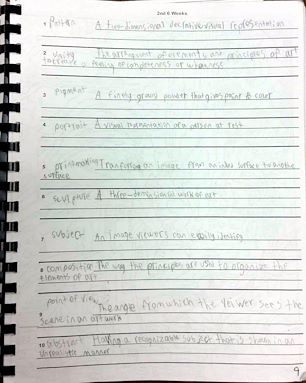 2nd 6 Weeks
1 pattern A two-dimensional decorative visual representation
2 unity The arrangment of elements and principles of art
to create a feeling of completeness or wholeness
3 pigment A finely ground powder that gives paint its color
4 portrait A visual representation of a person at rest
5 printmaking Transferring an image from an inked surface to another
surface
6 sculpture A three-dimensional work of art
7 subject An image viewers can easily identify
8 composition The way the principles are used to organize the
elements of art
9 point of view The angle from which the veiwer sees the
scene in an art work
10 abstract Having a recognizable subject that is shown in an
unrealistic manner
9